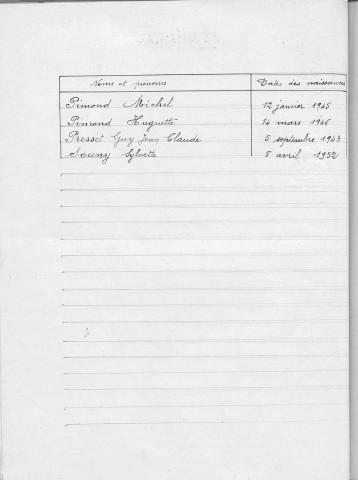 Noms et prénoms Dates des naissances
Pimond Michel 12 janvier 1945
Pimond Huguette 14 mars 1946
Presset Guy Jean Claude 5 septembre 1943
Souny Sylvette 5 avril 1952